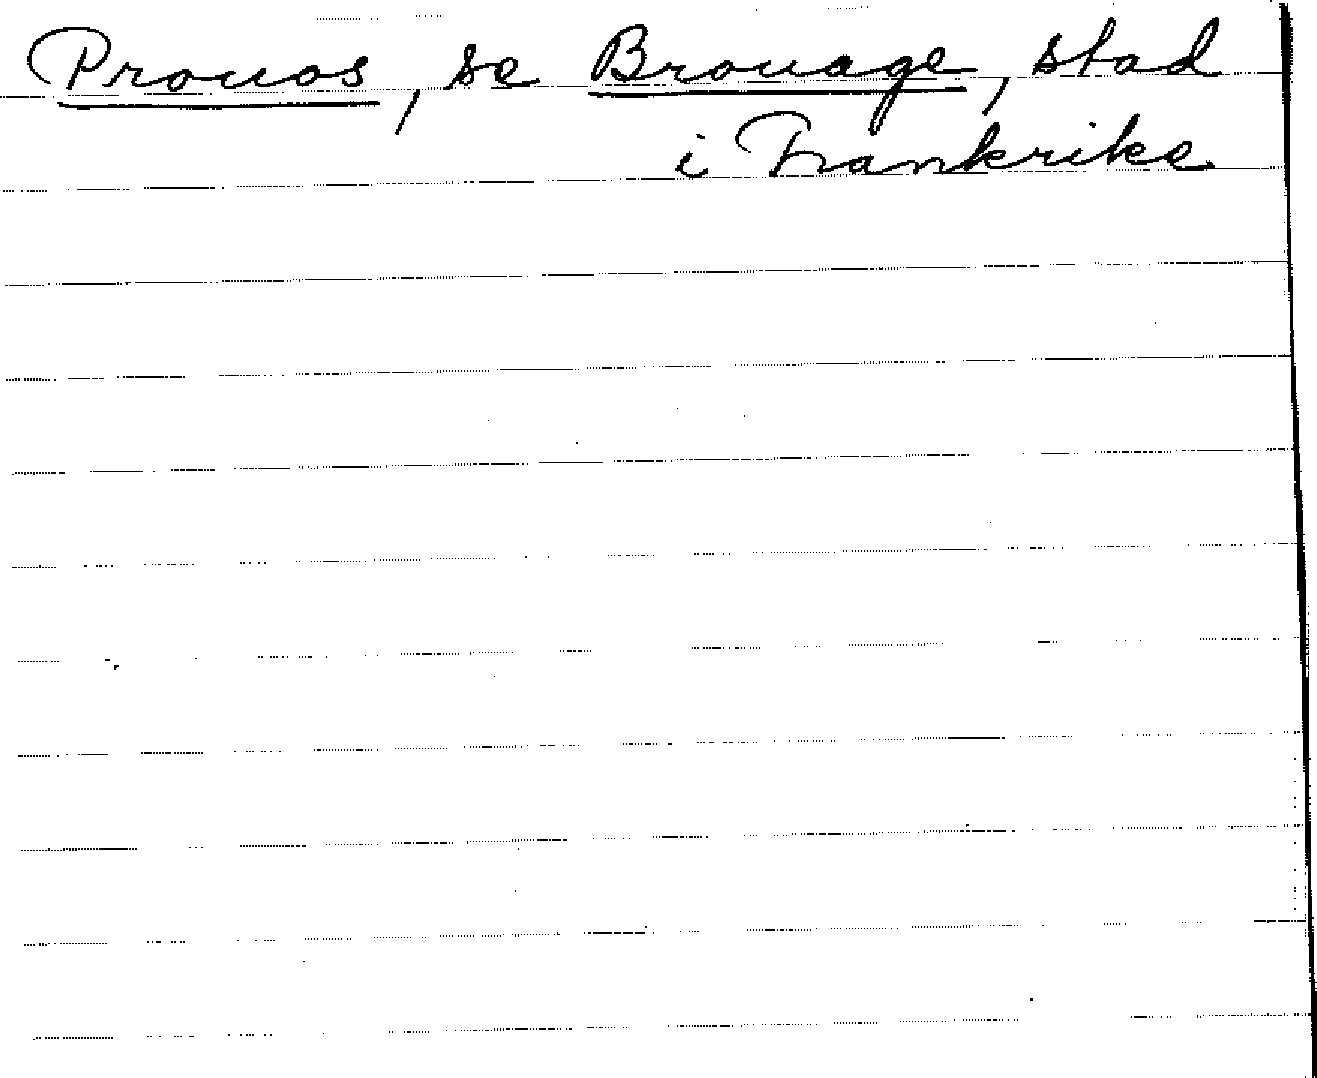 Prouos, se Brouage, stad
i Frankrike